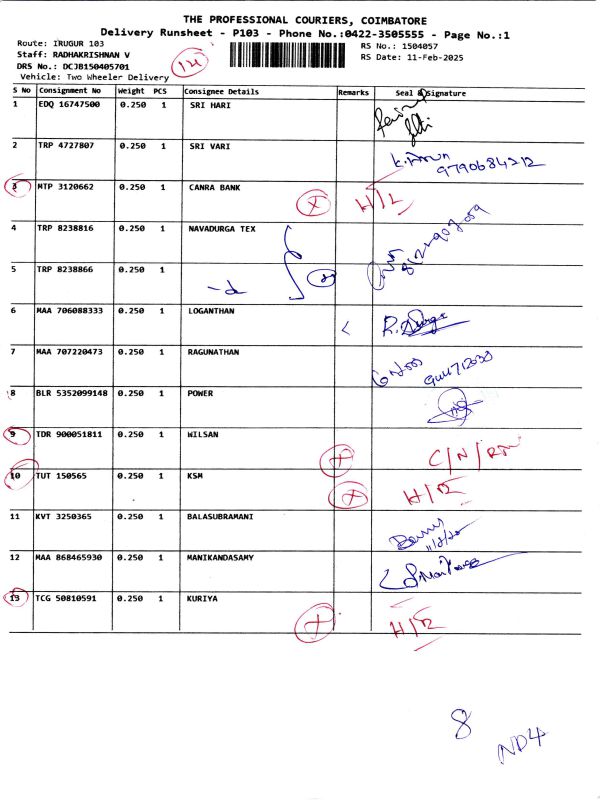 THE PROFESSIONAL COURIERS, COIMBATORE
Delivery Runsheet - P103 - Phone No.:0422-3505555 - Page No.:1
Route: IRUGUR 103
RS No.: 1504057
Staff: RADHAKRISHNAN V
RS Date: 11-Feb-2025
DRS No.: DCJB150405701
14
Vehicle: Two Wheeler Delivery
S No Consignment No Weight PCS Consignee Details Remarks Seal & Signature
1 EDQ 16747500 0.250 1 SRI HARI
2 TRP 4727807 0.250 1 SRI VARI
9790684212
3 MTP 3120662 0.250 1 CANRA BANK X H/L
4 TRP 8238816 0.250 1 NAVADURGA TEX
5 TRP 8238866 0.250 1
6 MAA 706088333 0.250 1 LOGANTHAN
7 MAA 707220473 0.250 1 RAGUNATHAN
8 BLR 5352099148 0.250 1 POWER
9 TDR 900051811 0.250 1 WILSAN X
10 TUT 150565 0.250 1 KSM X
11 KVT 3250365 0.250 1 BALASUBRAMANI
12 MAA 868465930 0.250 1 MANIKANDASAMY
13 TCG 50810591 0.250 1 KURIYA X
8
ND4